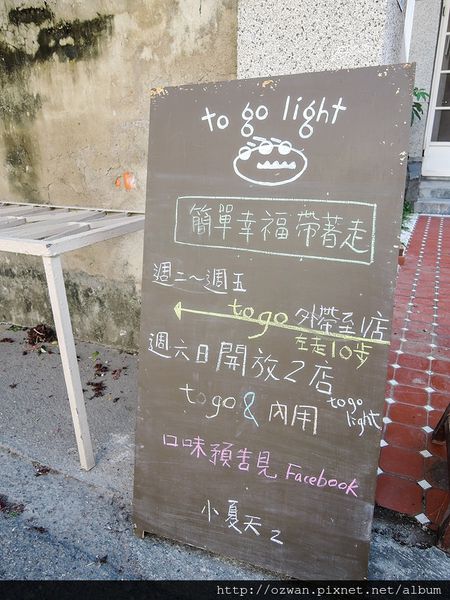 to go light
簡單幸福帶著走
週二～週五
to go 外帶至1店
左走10步
週六日開放2店
to go & 內用 to go light
口味預告見 Facebook
小夏天2
http://ozwan.pixnet.net/album